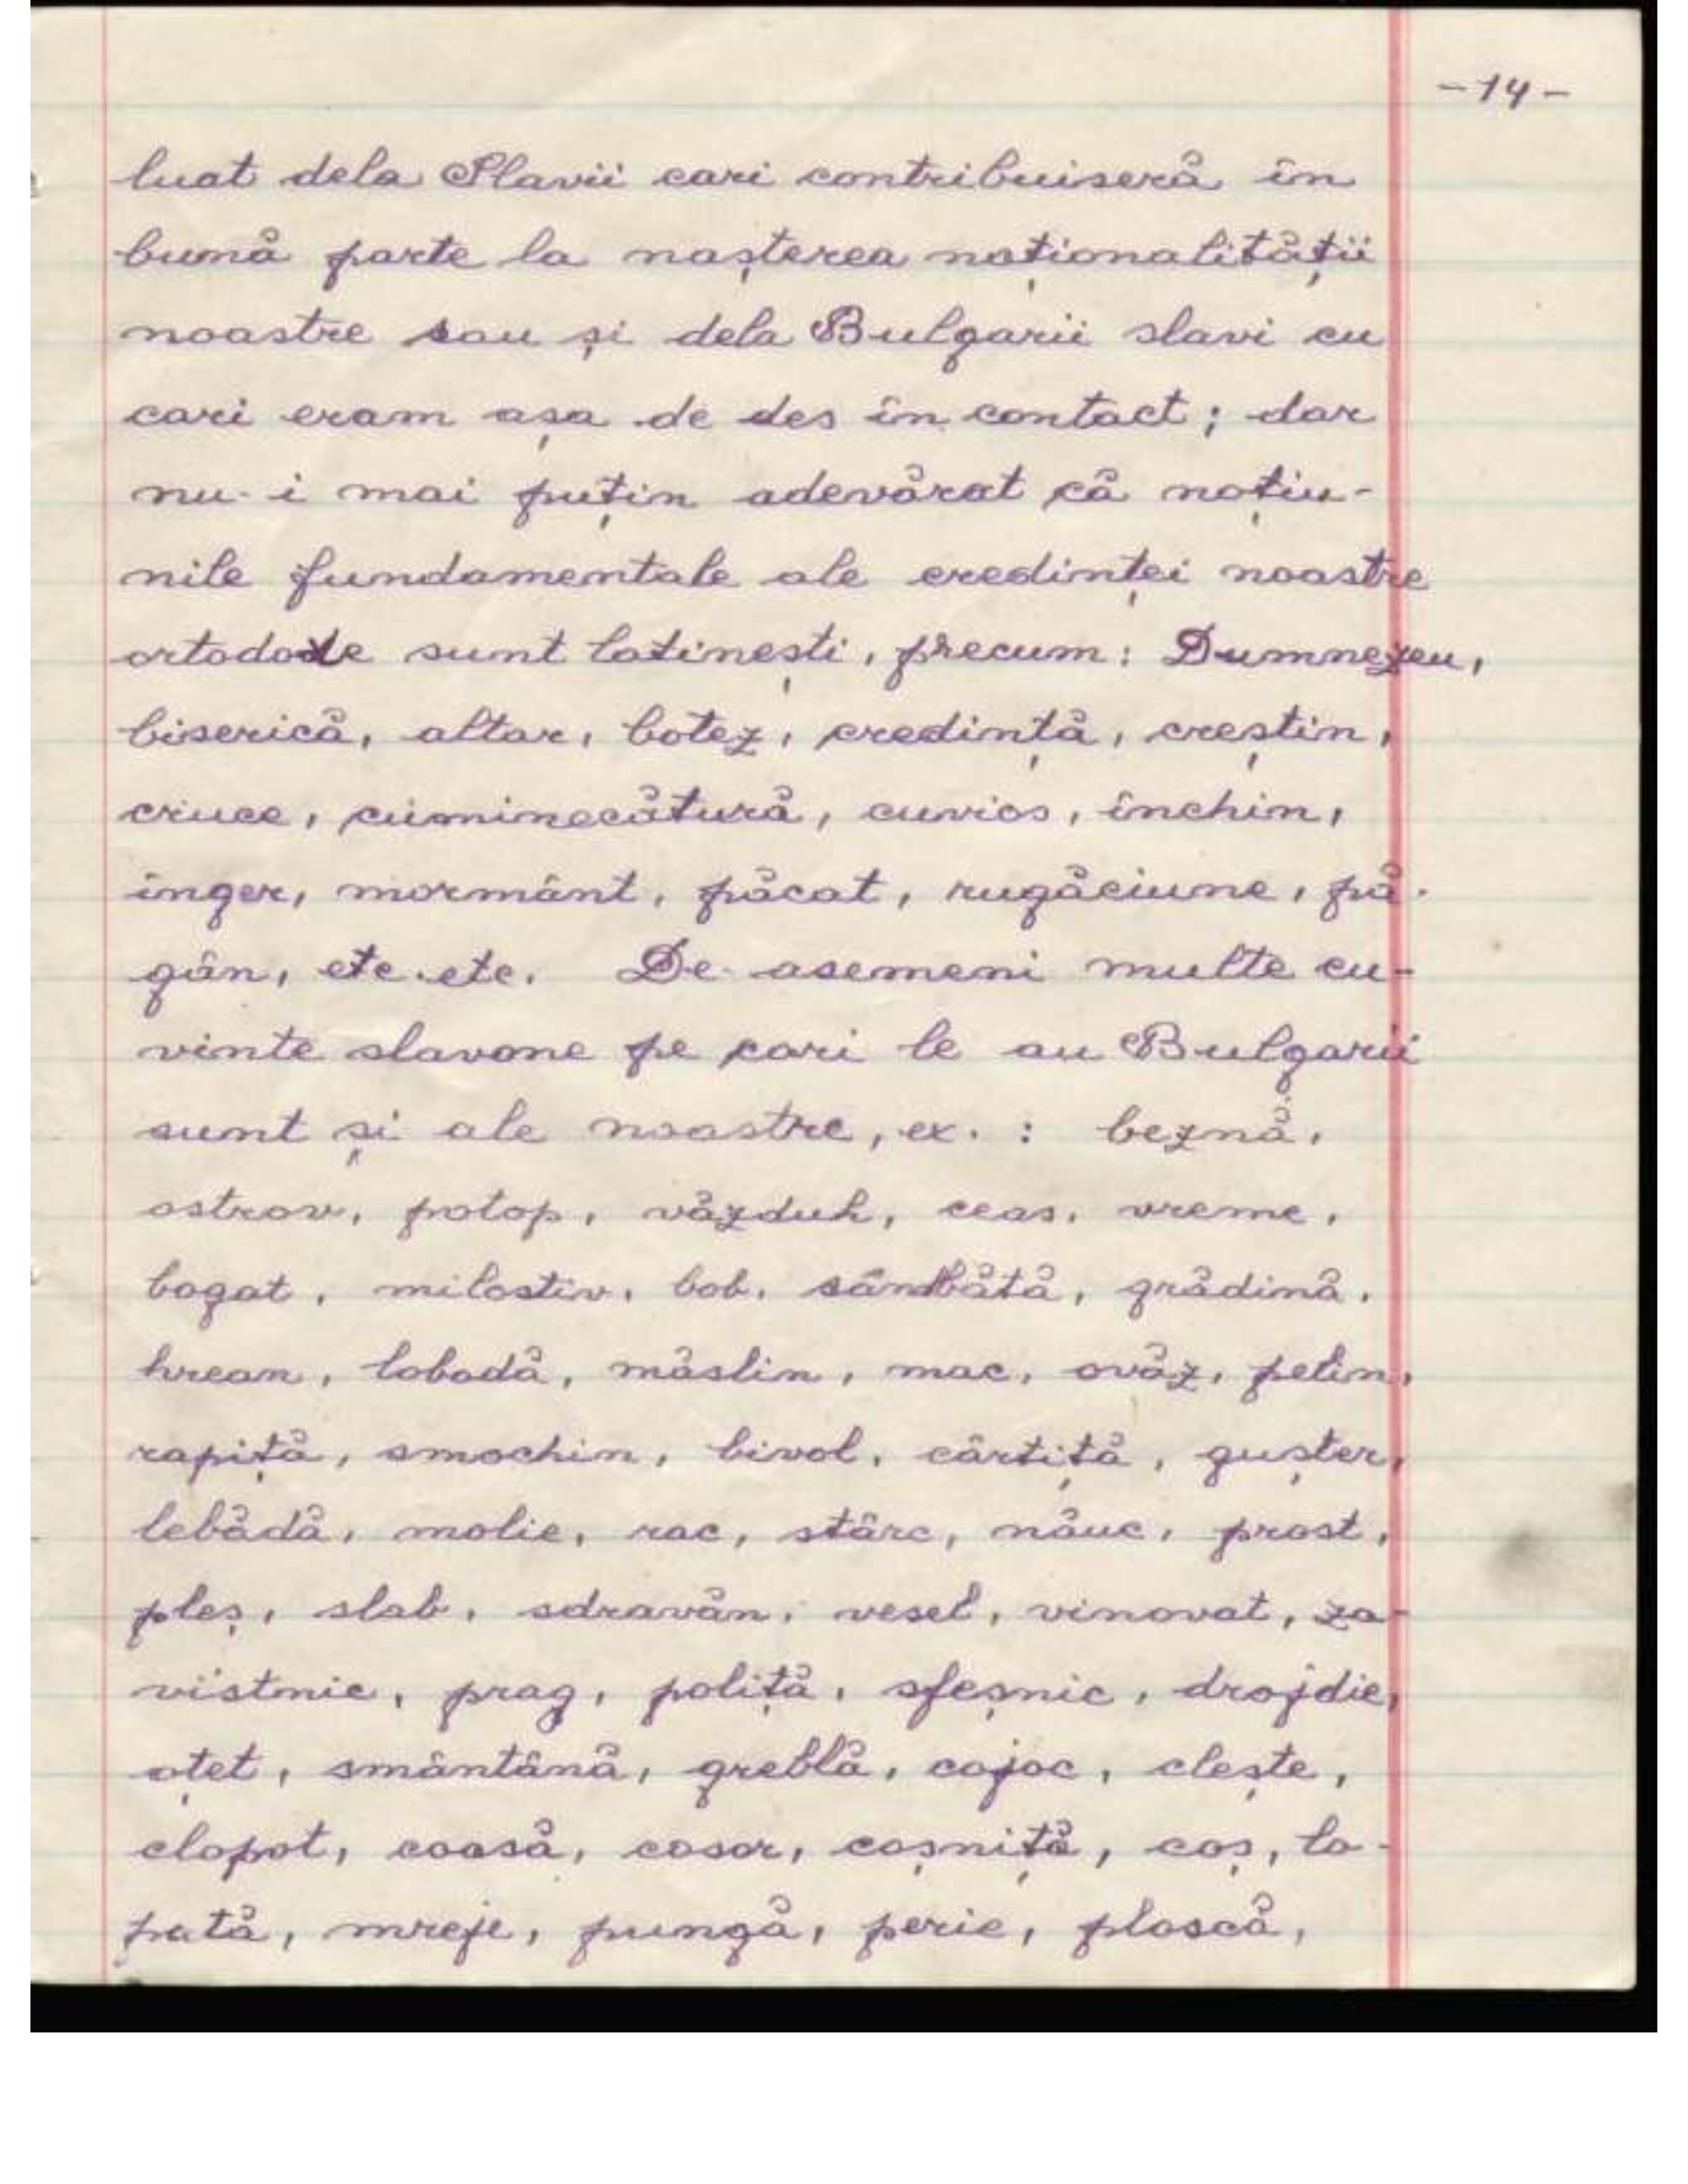 -14-
luat dela Slavii cari contribuiseră în
bună parte la nașterea naționalității
noastre sau și dela Bulgarii slavi cu
cari eram așa de des în contact; dar
nu-i mai puțin adevărat că noțiu-
nile fundamentale ale credinței noastre
ortodoxe sunt latinești, precum: Dumnezeu,
biserică, altar, botez, credință, creștin,
cruce, cuminecătură, cuvios, închin,
înger, mormânt, păcat, rugăciune, pă-
gân, etc. etc. De asemeni multe cu-
vinte slavone pe cari le au Bulgarii
sunt și ale noastre, ex. : beznă,
ostrov, potop, văzduh, ceas, vreme,
bogat, milostiv, bob, sâmbătă, grădină,
hrean, lobodă, măslin, mac, ovăz, pelin,
rapiță, smochin, bivol, cârtiță, gușter,
lebădă, molie, rac, stârc, năuc, prost,
pleș, slab, sdravăn, vesel, vinovat, za-
vistnic, prag, poliță, sfeșnic, drojdie,
oțet, smântână, greblă, cojoc, clește,
clopot, coasă, cosor, coșniță, coș, lo-
pată, mreje, pungă, perie, ploscă,